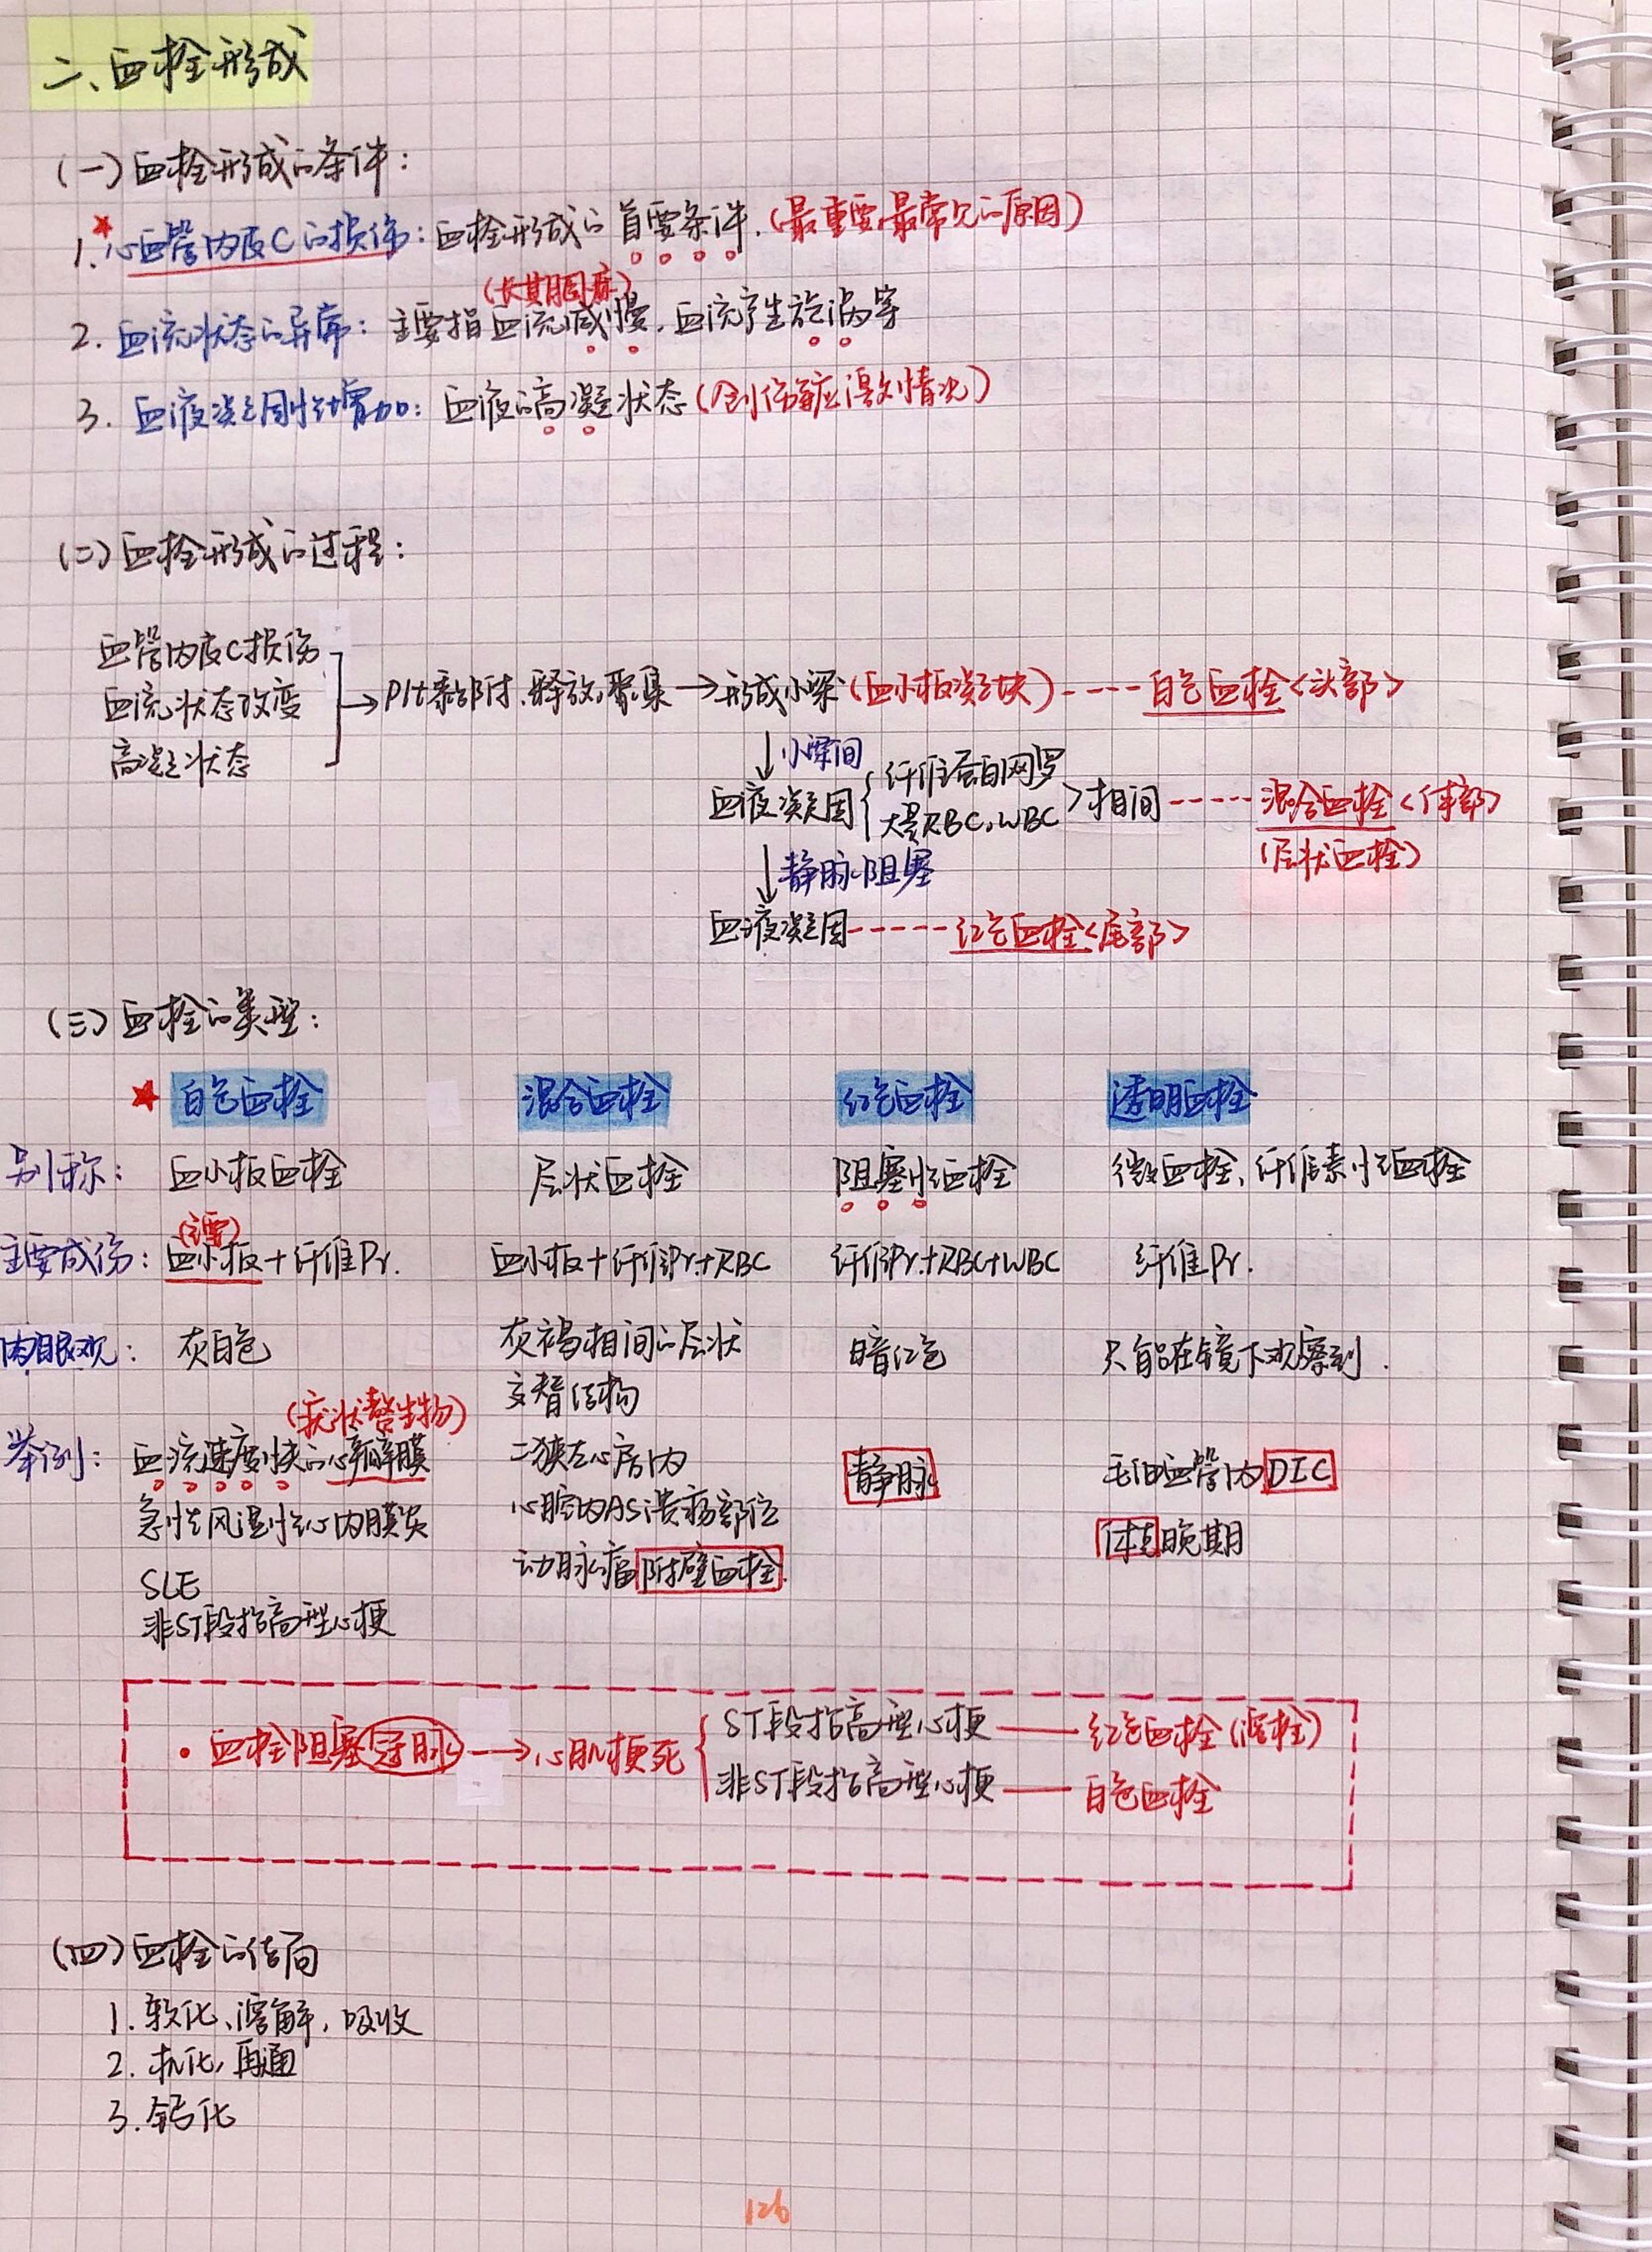 二、血栓形成
(一)血栓形成的条件:
1.★心血管内皮C的损伤:血栓形成的首要条件.(最重要,最常见的原因)
(长期困床)
2.血流状态的异常:主要指血流减慢,血流产生旋涡等
3.血液凝固性增加:血液的高凝状态(创伤等应激情况)
(二)血栓形成的过程:
血管内皮C损伤
血流状态改变
高凝状态
→Plt黏附、释放、聚集→形成小梁(血小板凝块)----白色血栓<头部>
↓小梁间
血液凝固{纤维蛋白网罗 大量RBC、WBC>相间-----混合血栓<体部>
(层状血栓)
↓静脉阻塞
血液凝固------红色血栓<尾部>
(三)血栓的类型:
★白色血栓 混合血栓 红色血栓 透明血栓
别称: 血小板血栓 层状血栓 阻塞性血栓 微血栓、纤维素性血栓
(主要)
主要成份:血小板+纤维Pr. 血小板+纤维Pr.+RBC 纤维Pr.+RBC+WBC 纤维Pr.
肉眼观: 灰白色 灰褐相间的层状 暗红色 只能在镜下观察到.
交替结构
(疣状赘生物)
举例: 血流速度快的心瓣膜 二狭左心房内 静脉 毛细血管内DIC
急性风湿性心内膜炎 心腔内AS溃疡部位 休克晚期
SLE 动脉瘤附壁血栓.
非ST段抬高型心梗
•血栓阻塞冠脉→心肌梗死{ST段抬高型心梗——红色血栓(溶栓)
非ST段抬高型心梗——白色血栓
(四)血栓的结局
1.软化、溶解,吸收
2.机化,再通
3.钙化
126